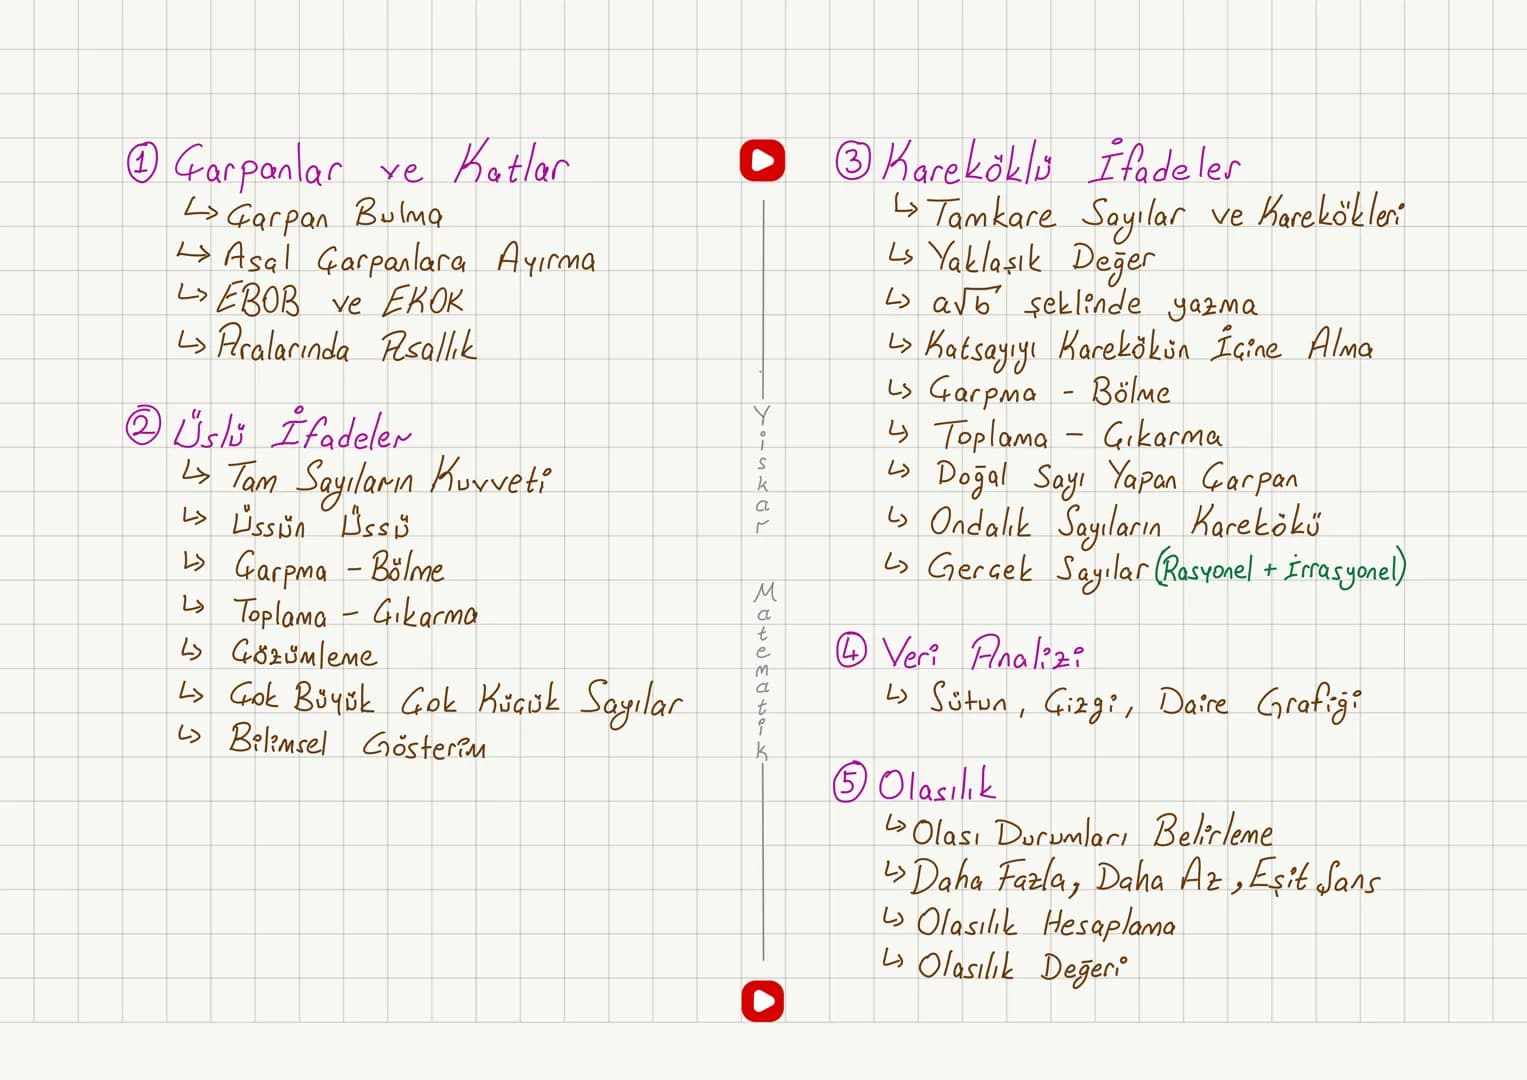 ① Çarpanlar ve Katlar
↳ Çarpan Bulma
↳ Asal Çarpanlara Ayırma
↳ EBOB ve EKOK
↳ Aralarında Asallık
② Üslü İfadeler
↳ Tam Sayıların Kuvveti
↳ Üssün Üssü
↳ Çarpma - Bölme
↳ Toplama - Çıkarma
↳ Çözümleme
↳ Çok Büyük Çok Küçük Sayılar
↳ Bilimsel Gösterim
Yiskar Matematik
③ Kareköklü İfadeler
↳ Tamkare Sayılar ve Karekökleri
↳ Yaklaşık Değer
↳ a√b şeklinde yazma
↳ Katsayıyı Karekökün İçine Alma
↳ Çarpma - Bölme
↳ Toplama - Çıkarma
↳ Doğal Sayı Yapan Çarpan
↳ Ondalık Sayıların Karekökü
↳ Gerçek Sayılar (Rasyonel + İrrasyonel)
④ Veri Analizi
↳ Sütun, Çizgi, Daire Grafiği
⑤ Olasılık
↳ Olası Durumları Belirleme
↳ Daha Fazla, Daha Az, Eşit Şans
↳ Olasılık Hesaplama
↳ Olasılık Değeri